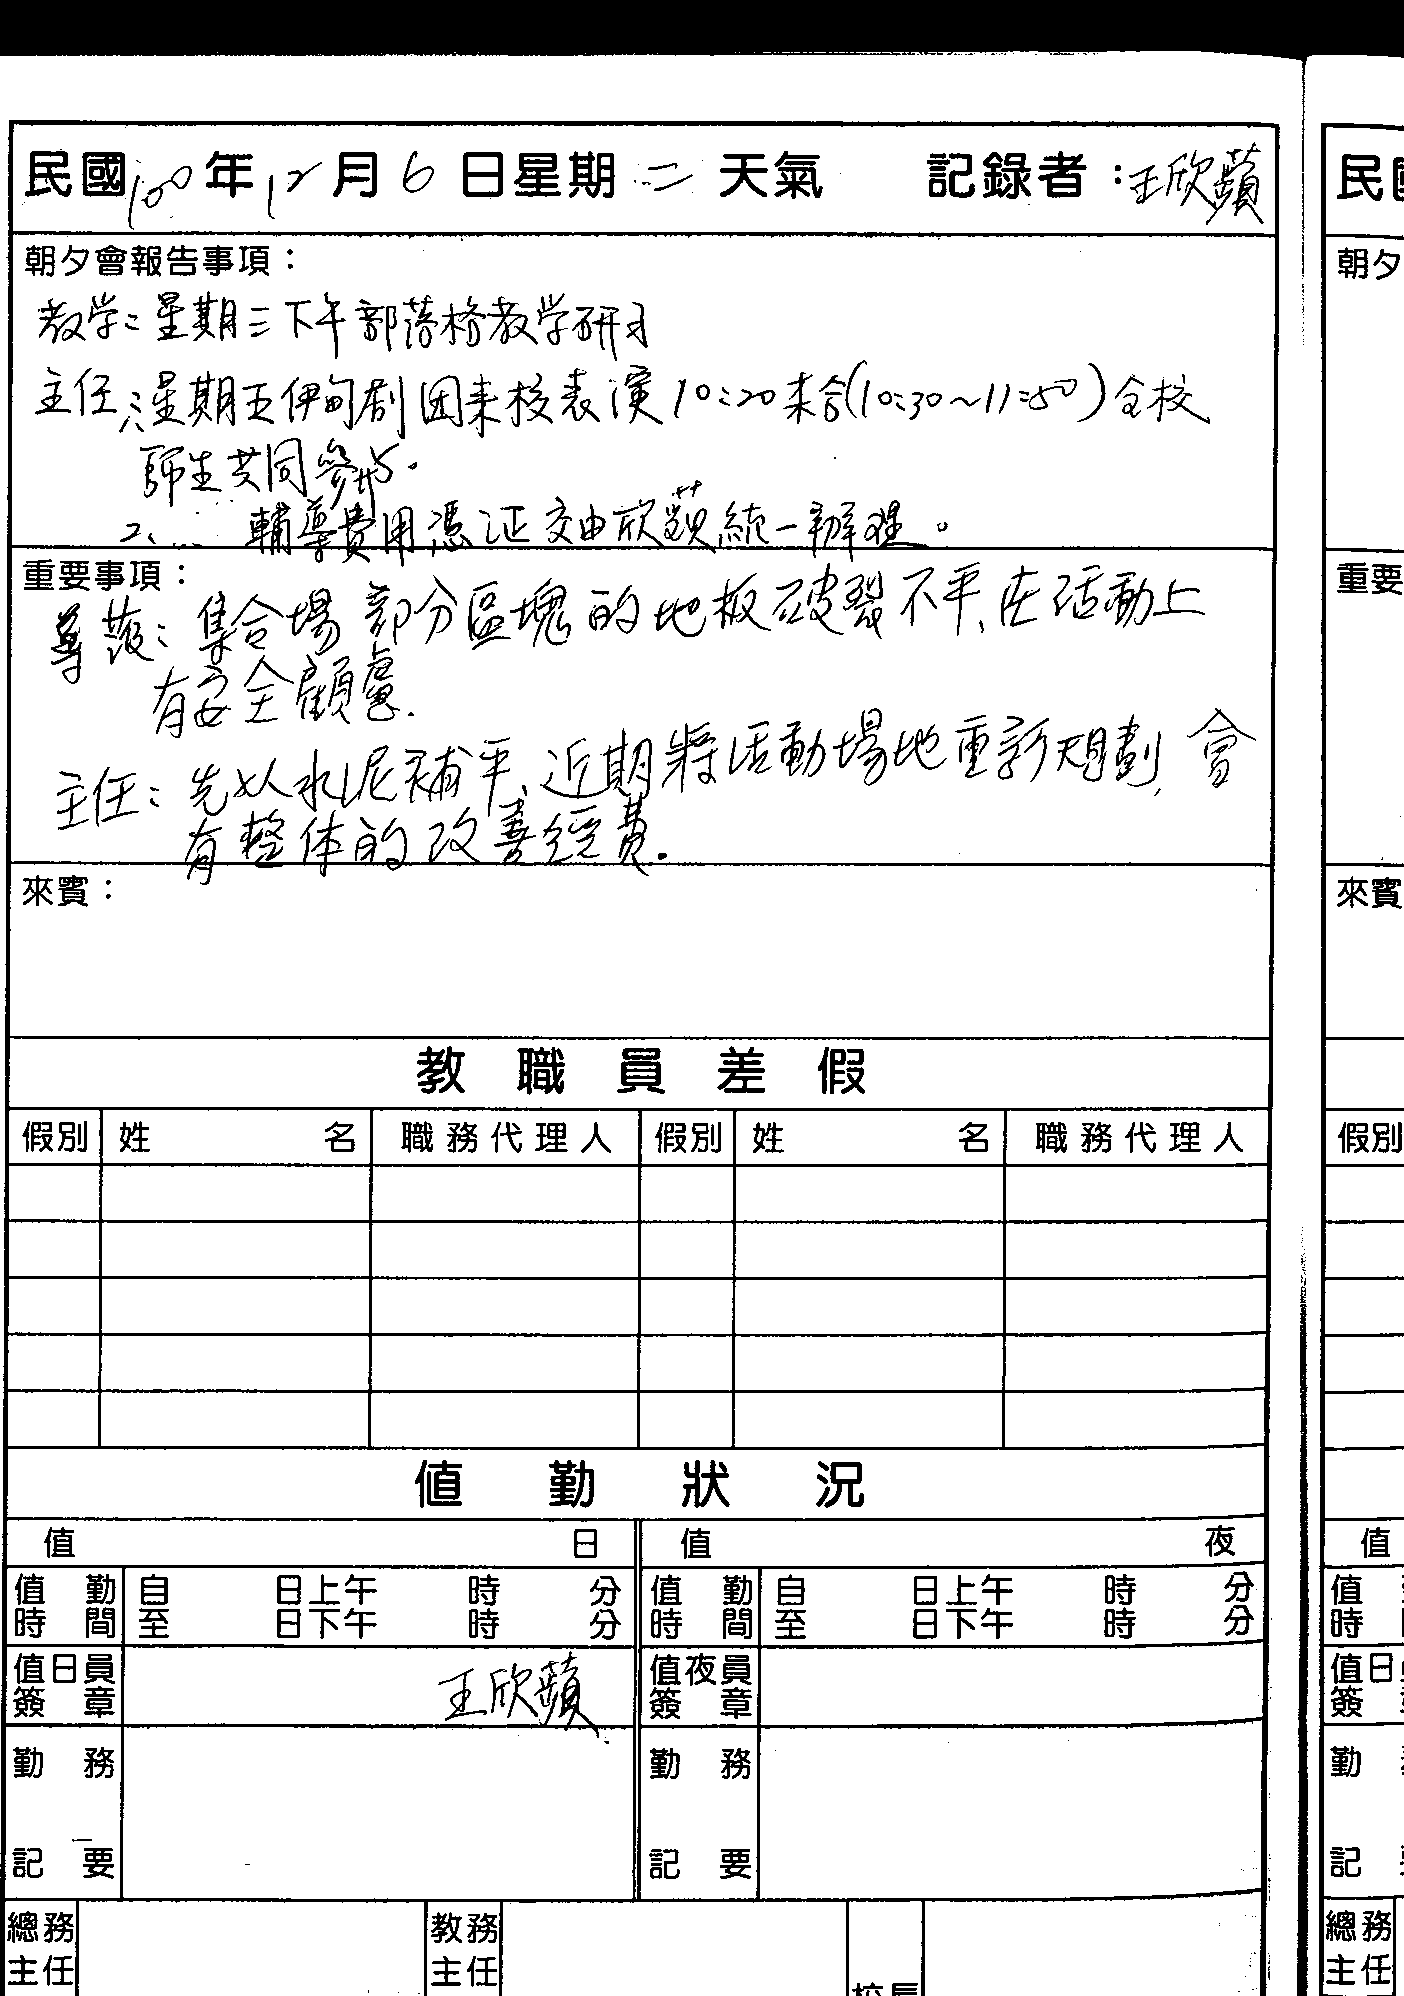 民國100年12月6日星期二 天氣 記錄者：王欣蘋
朝夕會報告事項：
教学：星期三下午部落格教学研习
主任：1、星期五伊甸剧团来校表演10:20集合(10:30～11:50)全校
師生共同參与。
2、… 輔導費用憑证交由欣蘋統一辦理。
重要事項：
集合場部分區塊的地板破裂不平、在活動上
有安全顧慮.
主任：先以水泥補平、近期將活動場地重新規劃，會
有整体的改善經費.
來賓：
教職員差假
假別 姓名 職務代理人 假別 姓名 職務代理人
值勤狀況
值日 值夜
值勤時間 自 日上午 時 分 值勤時間 自 日上午 時 分
至 日下午 時 分 至 日下午 時 分
值日員簽章 王欣蘋 值夜員簽章
勤務記要 勤務記要
總務主任 教務主任 校長
民國
朝夕
重要
來賓
假別
值
值
時
值日
簽
勤
記
總務
主任